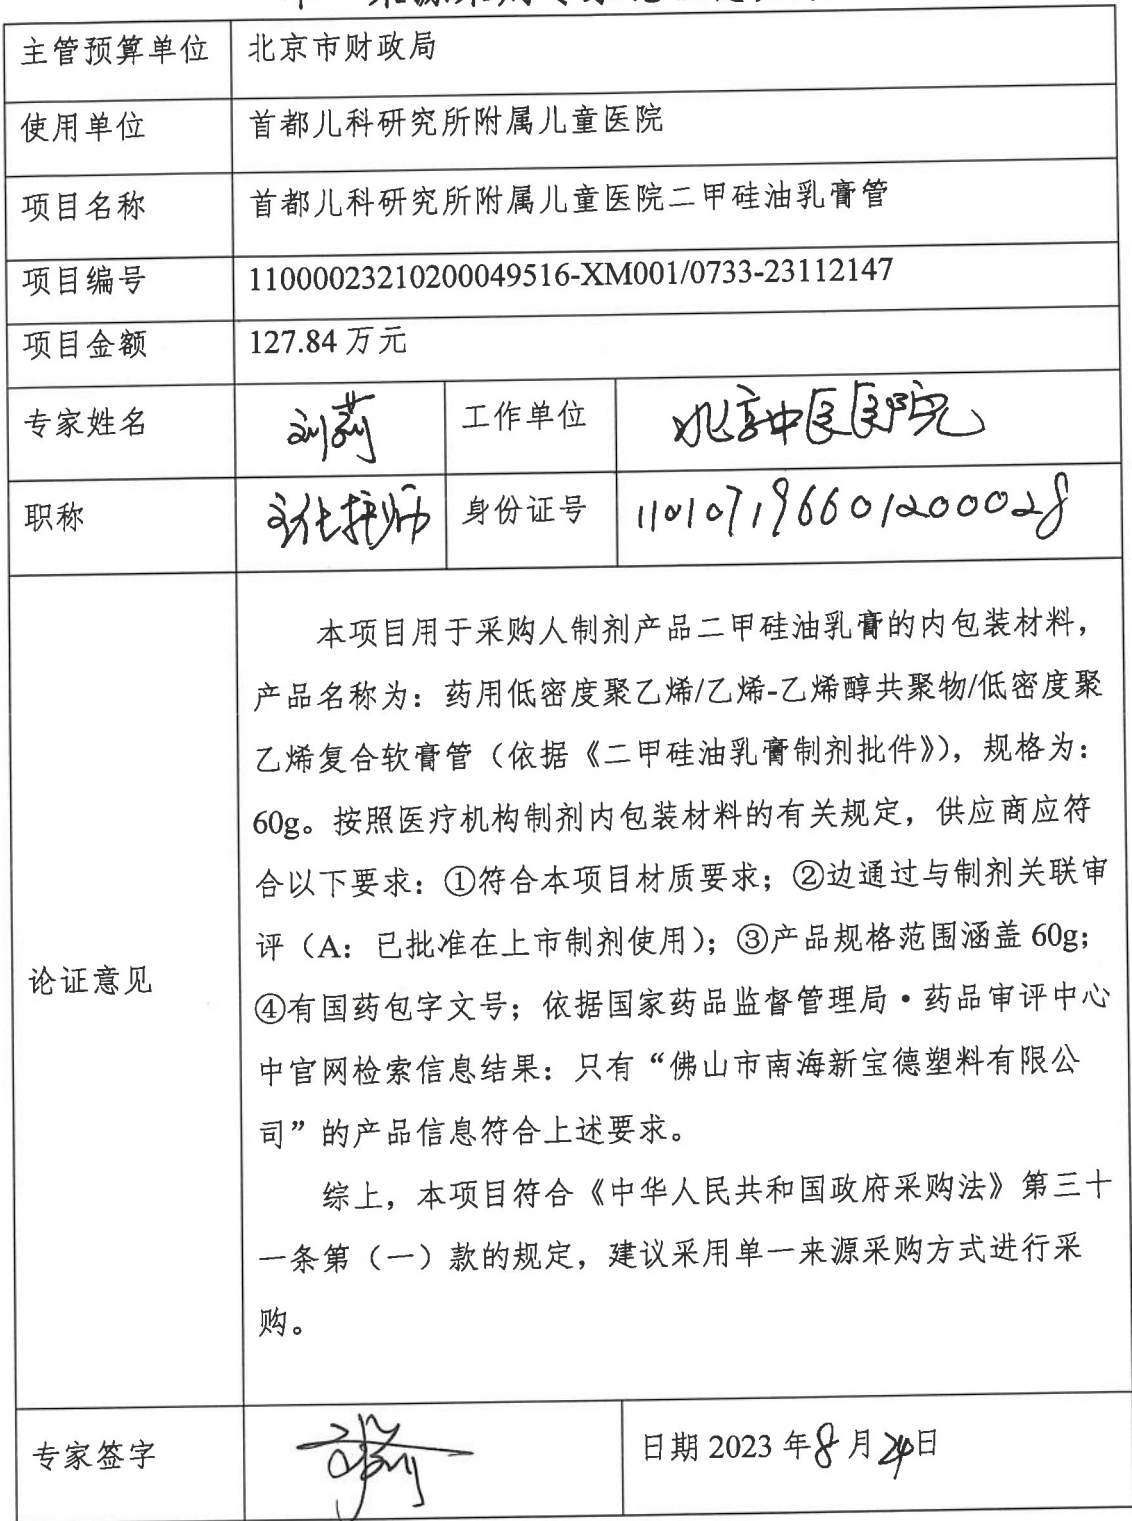 主管预算单位 北京市财政局
使用单位 首都儿科研究所附属儿童医院
项目名称 首都儿科研究所附属儿童医院二甲硅油乳膏管
项目编号 11000023210200049516-XM001/0733-23112147
项目金额 127.84 万元
专家姓名 刘莉 工作单位 北京中医医院
职称 主任护师 身份证号 110107196601200028
本项目用于采购人制剂产品二甲硅油乳膏的内包装材料，
产品名称为：药用低密度聚乙烯/乙烯-乙烯醇共聚物/低密度聚
乙烯复合软膏管（依据《二甲硅油乳膏制剂批件》），规格为：
60g。按照医疗机构制剂内包装材料的有关规定，供应商应符
合以下要求：①符合本项目材质要求；②边通过与制剂关联审
评（A：已批准在上市制剂使用）；③产品规格范围涵盖 60g；
论证意见
④有国药包字文号；依据国家药品监督管理局·药品审评中心
中官网检索信息结果：只有“佛山市南海新宝德塑料有限公
司”的产品信息符合上述要求。
综上，本项目符合《中华人民共和国政府采购法》第三十
一条第（一）款的规定，建议采用单一来源采购方式进行采
购。
专家签字 日期 2023 年 8 月 24 日